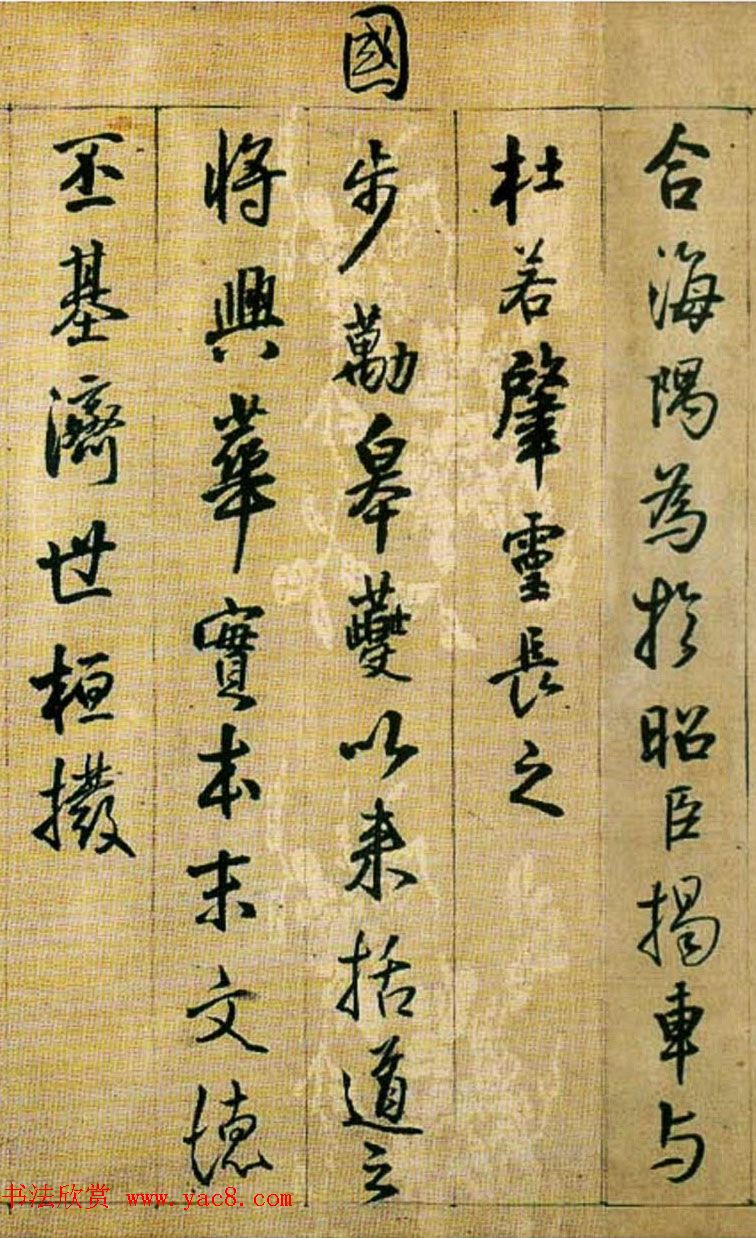 合海隅為於昭臣揭車与
杜若肇靈長之
國步勱皋蘷以来括道之
将興華實本末文德
丕基濟世桓撥
书法欣赏 www.yac8.com